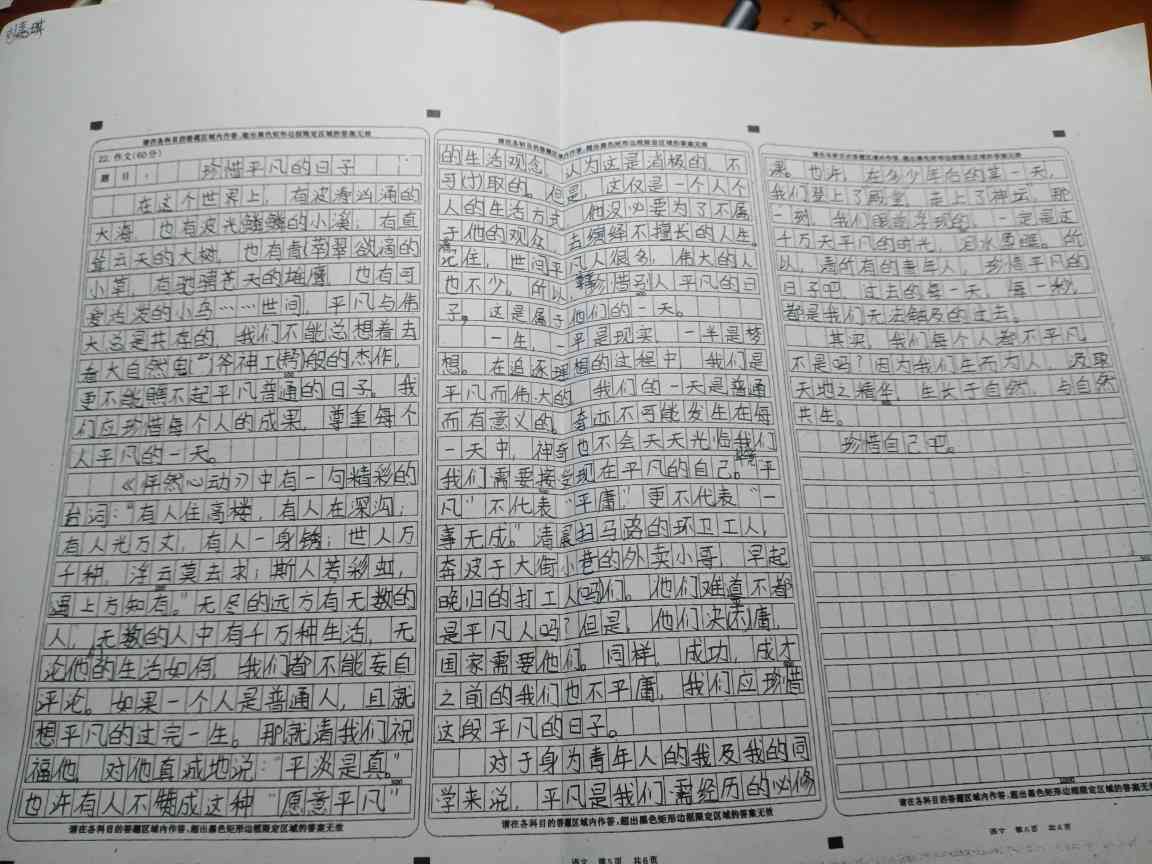 请在各科目的答题区域内作答,超出黑色矩形边框限定区域的答案无效
22. 作文(60分)
题 目: 珍惜平凡的日子
在这个世界上,有波涛汹涌的
大海,也有波光鳞鳞的小溪;有直
耸云天的大树,也有青翠欲滴的
小草;有驰骋苍天的雄鹰,也有可
爱的小鸟……世间,平凡与伟
大总是共存的,我们不能总想着去
看大自然鬼斧神工般的杰作,
更不能瞧不起平凡普通的日子。我
们应珍惜每个人的成果,尊重每个
人平凡的一天。
《怦然心动》中有一句精彩的
台词:“有人住高楼,有人在深沟,
有人光万丈,有人一身锈;世人万
千种,浮云莫去求;斯人若彩虹,
遇上方知有。”无尽的远方有无数的
人,无数的人中有千万种生活,无
论他的生活如何,我们都不能妄自
评论。如果一个人是普通人,且就
想平凡的过完一生。那就请我们祝
福他,对他真诚地说:“平淡是真。”
也许有人不赞成这种“愿意平凡”
请在各科目的答题区域内作答,超出黑色矩形边框限定区域的答案无效
请在各科目的答题区域内作答,超出黑色矩形边框限定区域的答案无效
的生活观念,认为这是消极的,不
可取的。但是,这仅是一个人个
人的生活方式,他没必要为了不属
于他的观众,去演绎不擅长的人生。
记住,世间平凡人很多,伟大的人
也不少。所以,珍惜别人平凡的日
子。这是属于他们的一天。
一生,一半是现实,一半是梦
想。在追逐理想的过程中,我们是
平凡而伟大的,我们的一天是普通
而有意义的。奇迹不可能发生在每
一天中,神奇也不会天天光临我们
我们需要接受现在平凡的自己。“平
凡”不代表“平庸”更不代表“一
事无成。”清晨扫马路的环卫工人,
奔波于大街小巷的外卖小哥,早起
晚归的打工人们。他们难道不都
是平凡人吗?但是,他们决不庸,
国家需要他们。同样,成功,成才
之前的我们也不平庸,我们应珍惜
这段平凡的日子。
对于身为青年人的我及我的同
学来说,平凡是我们需经历的必修
请在各科目的答题区域内作答,超出黑色矩形边框限定区域的答案无效
语文 第5页 共6页
请在各科目的答题区域内作答,超出黑色矩形边框限定区域的答案无效
课。也许,在多少年后的某一天,
我们登上了殿堂,走上了神坛,那
一刻,我们眼前浮现的,一定是这
千万天平凡的时光,
以,请所有的青年人,珍惜平凡的
日子吧,过去的每一天,每一秒,
都是我们无法触及的过去。
其实,我们每个人都不平凡,
不是吗?因为我们生而为人,汲取
天地之精华,生长于自然,与自然
共生。
珍惜自己吧。
请在各科目的答题区域内作答,超出黑色矩形边框限定区域的答案无效
语文 第6页 共6页